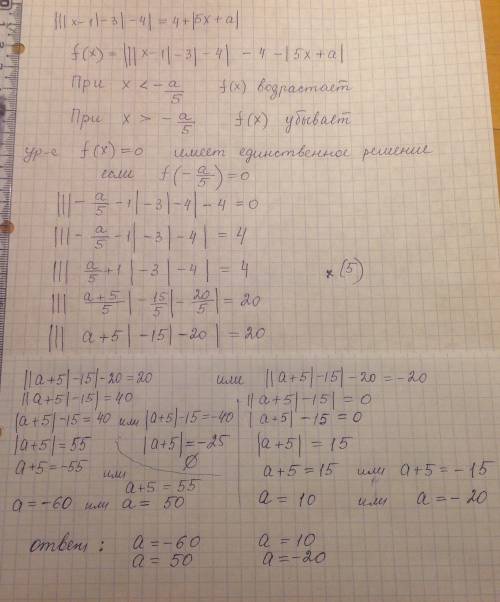 |||x-1|-3|-4| = 4+|5x+a|
f(x) = |||x-1|-3|-4| - 4 - |5x+a|
При x < -a/5 f(x) возрастает
При x > -a/5 f(x) убывает
ур-е f(x)=0 имеет единственное решение
если f(-a/5)=0
|||-a/5-1|-3|-4|-4=0
|||-a/5-1|-3|-4| = 4
|||a/5+1|-3|-4| = 4 ×(5)
|||(a+5)/5|-15/5|-20/5| = 20
|||a+5|-15|-20| = 20
||a+5|-15|-20=20 или ||a+5|-15|-20=-20
||a+5|-15|=40 ||a+5|-15|=0
|a+5|-15=40 или |a+5|-15=-40 |a+5|-15=0
|a+5|=55 |a+5|=-25 |a+5|=15
a+5=-55 или ∅ a+5=15 или a+5=-15
a+5=55
a=-60 или a=50 a=10 или a=-20
ответ: a=-60 a=10
a=50 a=-20